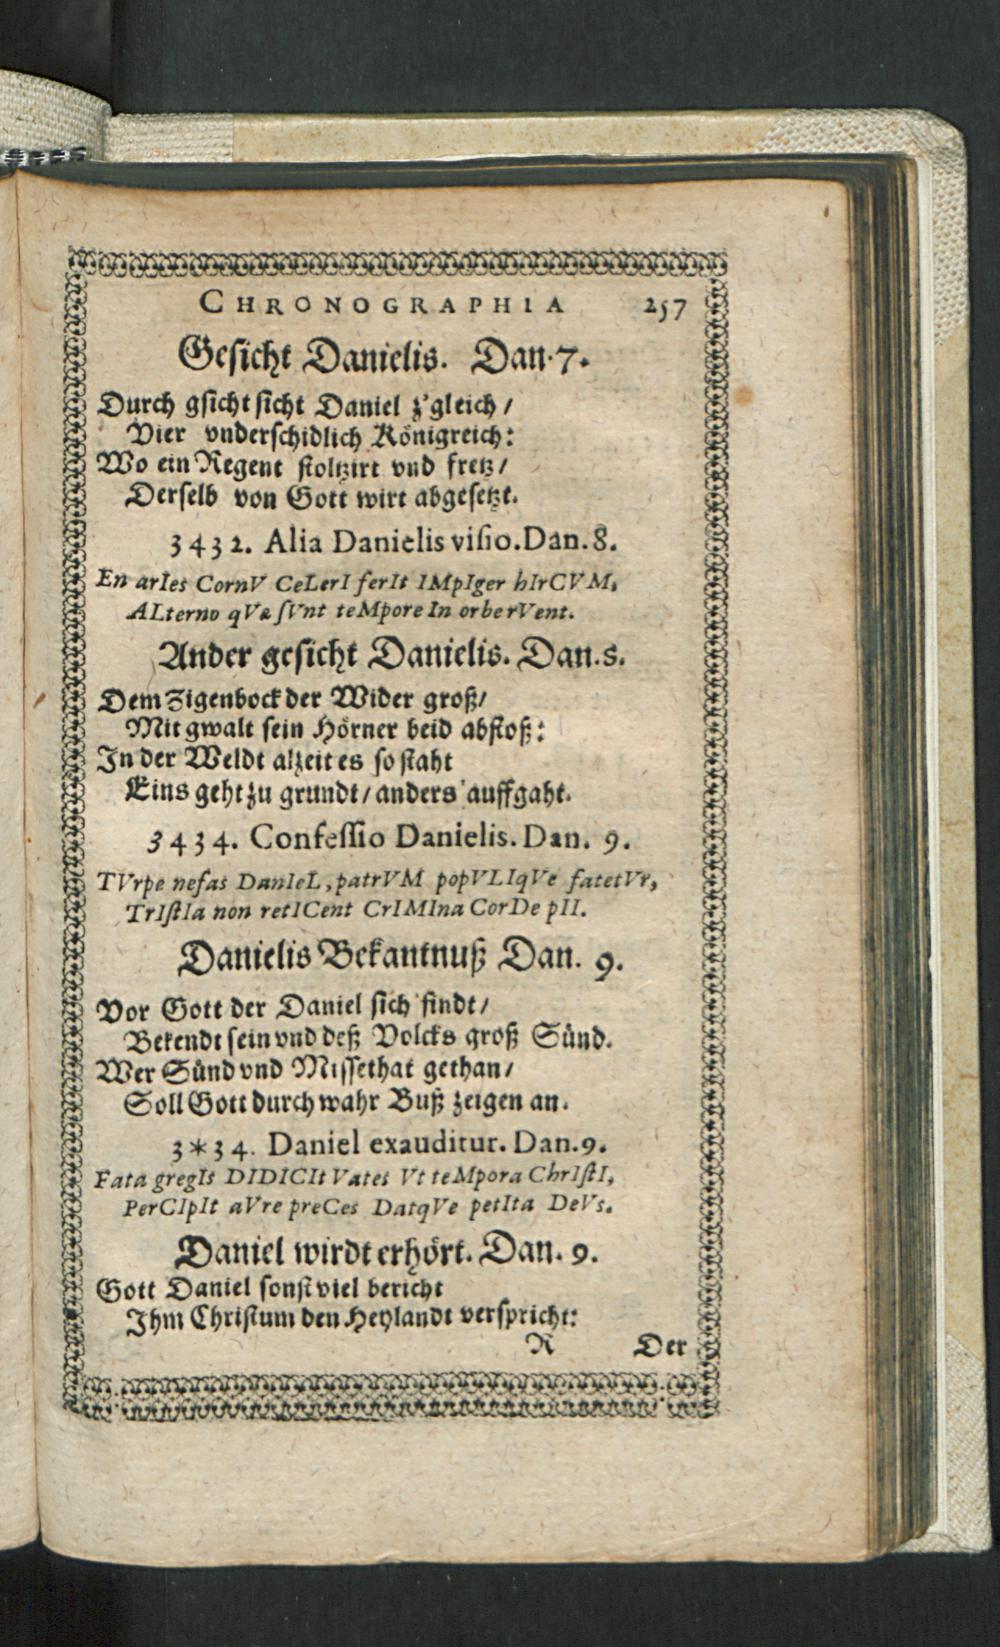 CHRONOGRAPHIA 257
Gesicht Danielis. Dan. 7.
Durch gsicht sicht Daniel z'gleich /
Vier vnderschidlich Königreich:
Wo ein Regent stoltzirt vnd fretz /
Derselb von Gott wirt abgesetzt.
3432. Alia Danielis visio. Dan. 8.
En arIes CornV CeLerI ferIt IMpIger hIrCVM,
ALterno qVæ sVnt teMpore In orbe rVent.
Ander gesicht Danielis. Dan. s.
Dem Zigenbock der Wider groß /
Mit gwalt sein Hörner beid abstoß:
In der Weldt alzeit es so staht
Eins geht zu grundt / anders auffgaht.
3434. Confessio Danielis. Dan. 9.
TVrpe nefas DanIeL, patrVM popVLIqVe fatetVr,
TrIstIa non retICent CrIMIna CorDe pII.
Danielis Bekantnuß Dan. 9.
Vor Gott der Daniel sich findt /
Bekendt sein vnd deß Volcks groß Sünd.
Wer Sünd vnd Missethat gethan /
Soll Gott durch wahr Buß zeigen an.
3*34. Daniel exauditur. Dan. 9.
Fata gregIs DIDICIt Vates Vt teMpora ChrIstI,
PerCIpIt aVre preCes DatqVe petIta DeVs.
Daniel wirdt erhört. Dan. 9.
Gott Daniel sonst viel bericht
Ihm Christum den Heylandt verspricht:
R Der